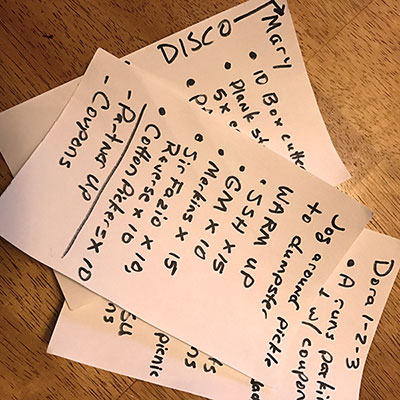 Mary
DISCO
• 10 Box cutte
• Plank st
5x
Jog around pickle
to dumpster
WARM UP
• SSH x 15
• GM x 10
• Merkins x 15
• Sir Fazio x 10,
Reverse x 10
• Cotton Pickers x 10
- Partner UP
- Coupons
Dora 1-2-3
• A runs parki
↓ w/ coupon
picnic